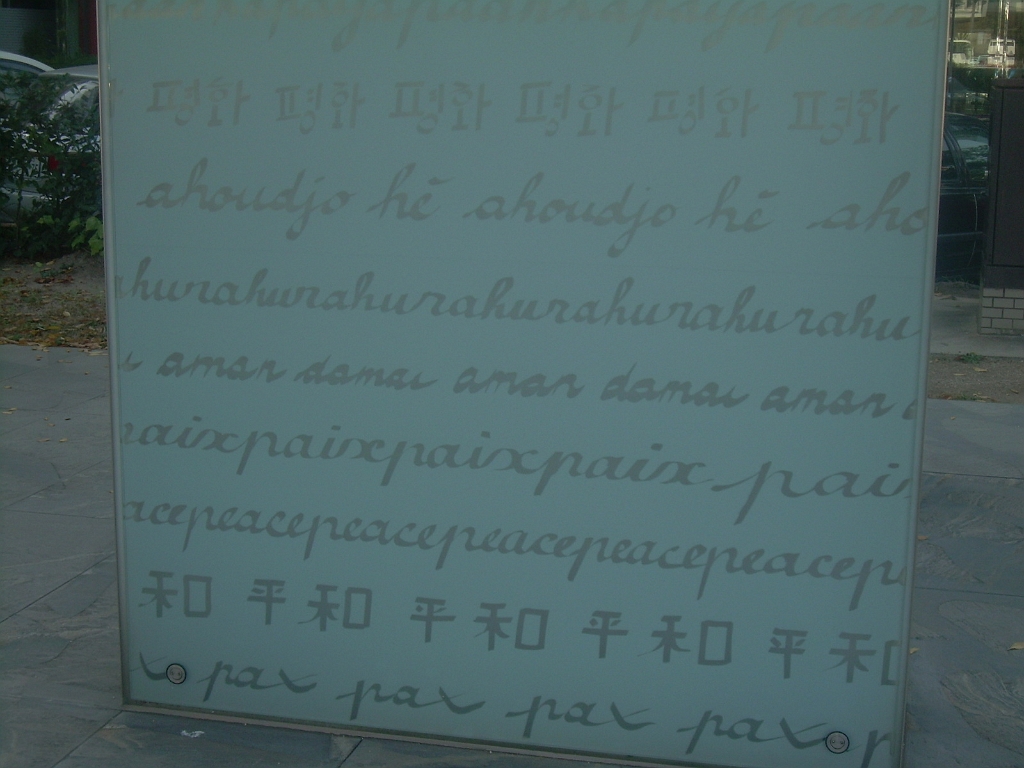 평화 평화 평화 평화 평화 평화
ahoudjo hĕ ahoudjo hĕ aho
ahurahurahurahurahurahurahu
aman damai aman damai aman
paixpaixpaixpaix pai
acepeacepeacepeacepeacepeacep
和 平和 平和 平和 平和
x pax pax pax pax p